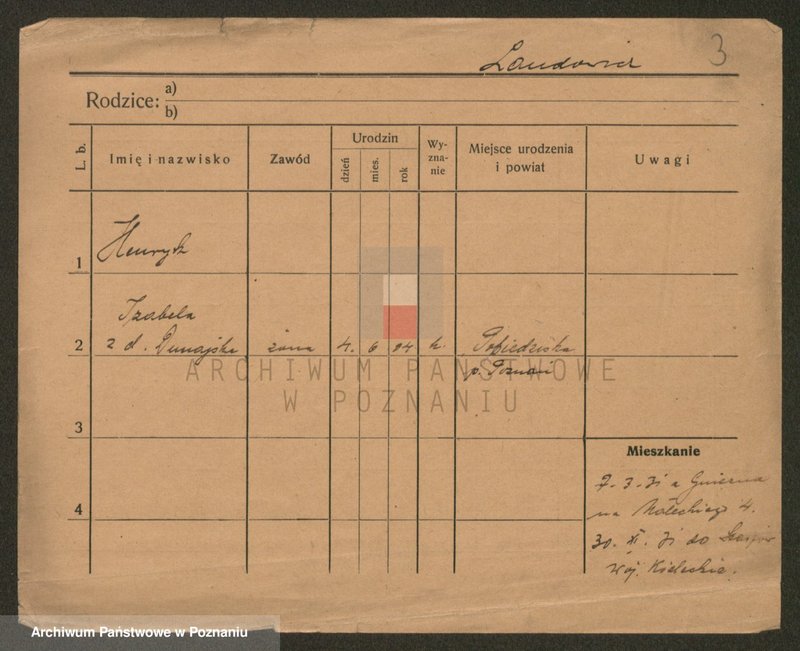 3
Rodzice: a)
b)
L. b.
Imię i nazwisko
Zawód
Urodzin
dzień
mies.
rok
Wy-
zna-
nie
Miejsce urodzenia
i powiat
Uwagi
1
Henryk
Izabela
2
z d. Dunajska
żona
4. 6 04
k.
Pobiedziska
p. Poznań
ARCHIWUM PAŃSTWOWE
W POZNANIU
3
Mieszkanie
4
7. 3. 31 z Gniezna
na 4.
30. XI. 31 do
woj. Kieleckie.
Archiwum Państwowe w Poznaniu